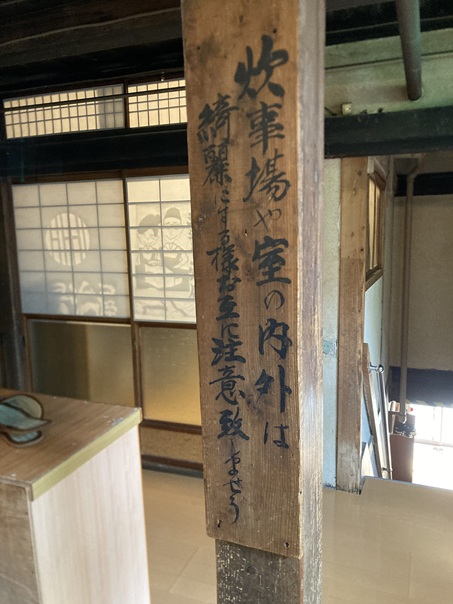 炊事場や室の内外は
綺麗にする様お互に注意致しませう